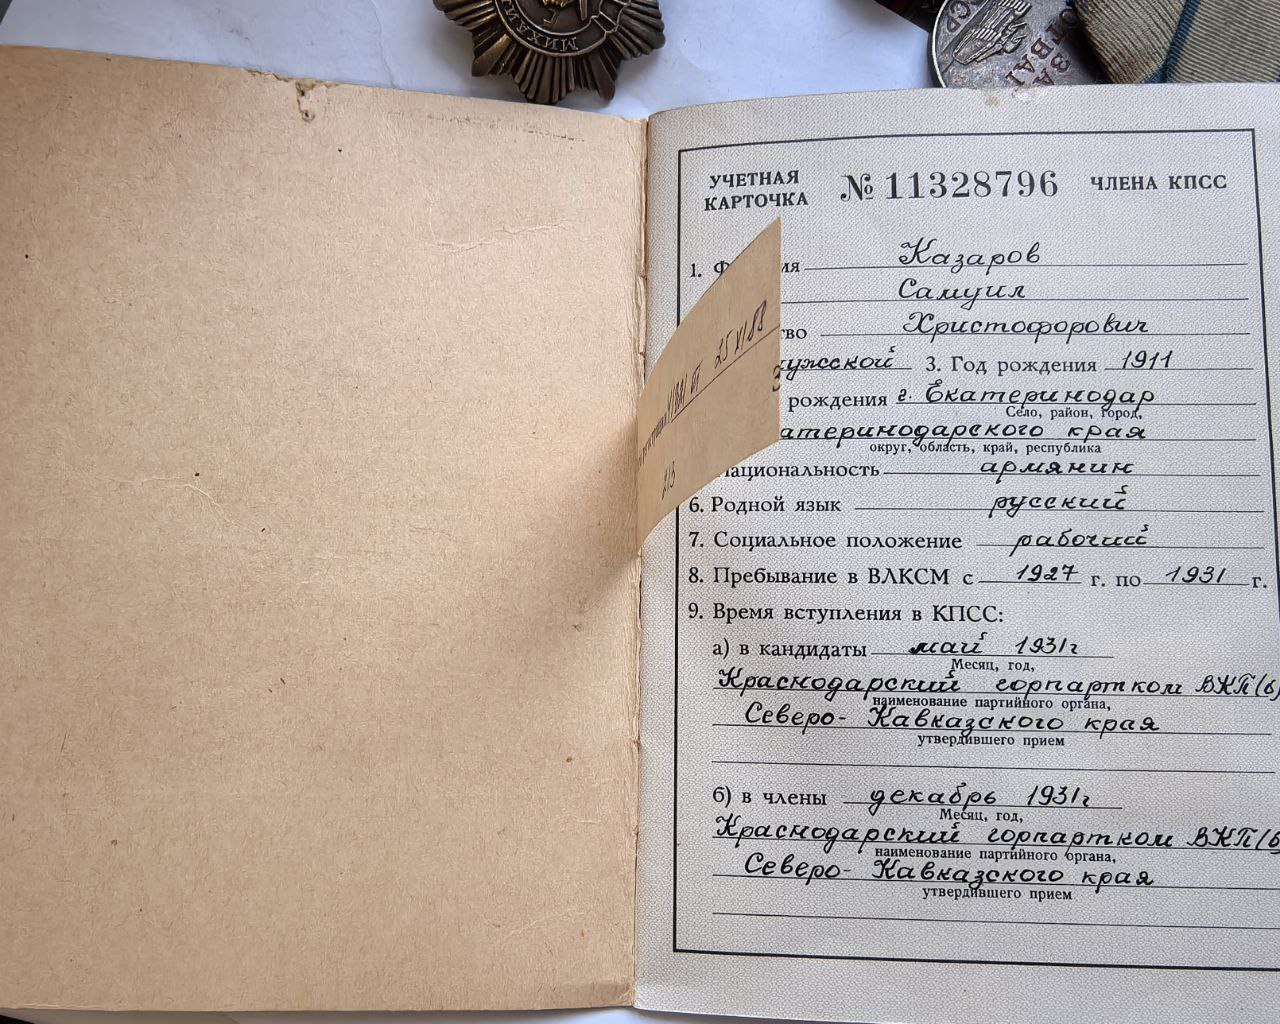 МИХАИЛ
ЗА
ОТВАГ
СССР
УЧЕТНАЯ
КАРТОЧКА
№ 11328796
ЧЛЕНА КПСС
1. Ф ия Казаров
Самуил
тво Христофорович
мужской 3. Год рождения 1911
рождения г. Екатеринодар
Село, район, город,
атеринодарского края
округ, область, край, республика
Национальность армянин
6. Родной язык русский
7. Социальное положение рабочий
8. Пребывание в ВЛКСМ с 1927 г. по 1931 г.
9. Время вступления в КПСС:
а) в кандидаты май 1931г
Месяц, год,
Краснодарский горпартком ВКП(б)
наименование партийного органа,
Северо-Кавказского края
утвердившего прием
б) в члены декабрь 1931г
Месяц, год,
Краснодарский горпартком ВКП(б
наименование партийного органа,
Северо-Кавказского края
утвердившего прием
от 25 XI 88
213